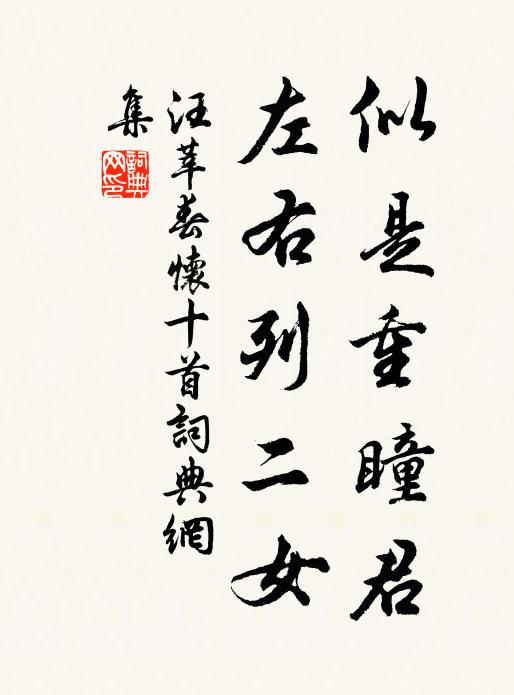 似是重瞳君
左右列二女
汪莘春懷十首詞典網
集
詞典网印